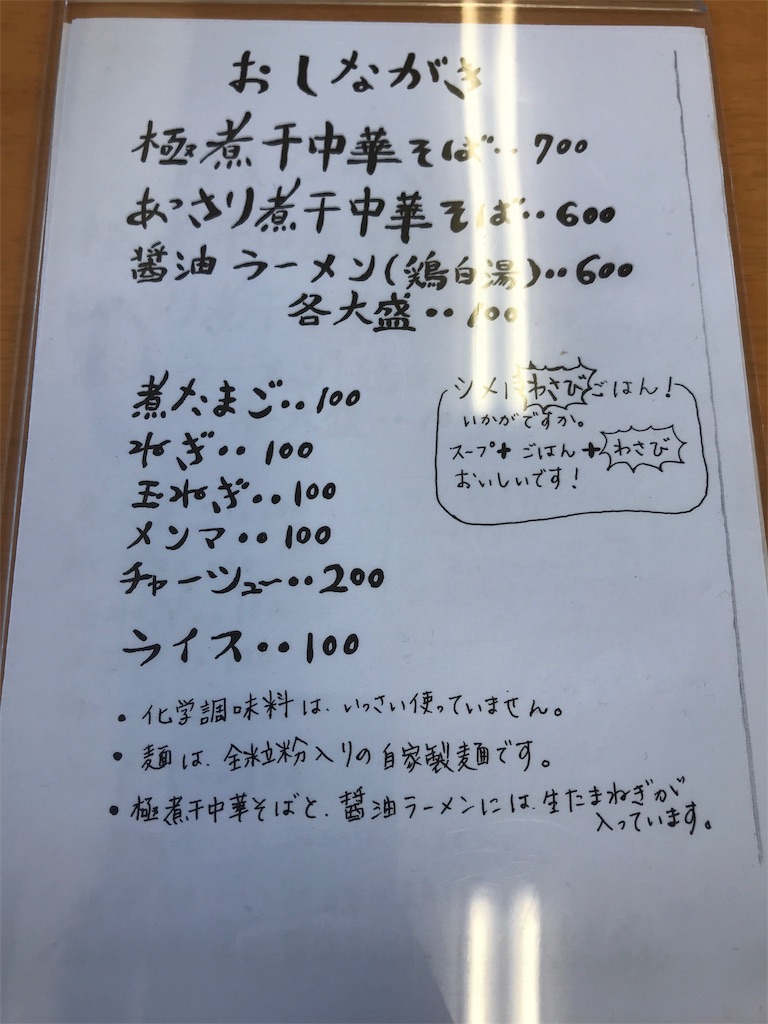 おしながき
極煮干中華そば‥700
あっさり煮干中華そば‥600
醤油ラーメン(鶏白湯)‥600
各大盛‥100
煮たまご‥100
ねぎ‥100
玉ねぎ‥100
メンマ‥100
チャーシュー‥200
ライス‥100
シメにわさびごはん!
いかがですか。
スープ+ごはん+わさび
おいしいです!
・化学調味料は、いっさい使っていません。
・麺は、全粒粉入りの自家製麺です。
・極煮干中華そばと、醤油ラーメンには、生たまねぎが
入っています。